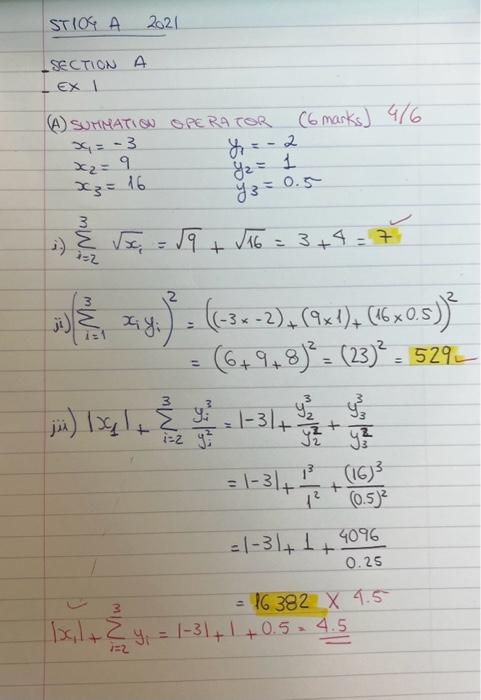 ST104 A 2021
- SECTION A
- EX 1
(A) SUMMATION OPERATOR (6 marks) 4/6
x₁ = -3 y₁ = -2
x₂ = 9 y₂ = 1
x₃ = 16 y₃ = 0.5
i) ∑_{i=2}^{3} √x_i = √9 + √16 = 3 + 4 = 7 ✓
ii) (∑_{i=1}^{3} x_i y_i)² = ((-3 × -2) + (9 × 1) + (16 × 0.5))²
= (6 + 9 + 8)² = (23)² = 529 ✓
iii) |x₁| + ∑_{i=2}^{3} y_i³/y_i² = |-3| + y₂³/y₂² + y₃³/y₃²
= |-3| + 1³/1² + (16)³/(0.5)²
= |-3| + 1 + 4096/0.25
= 16382 X 4.5
✓
|x₁| + ∑_{i=2}^{3} y_i = |-3| + 1 + 0.5 = 4.5